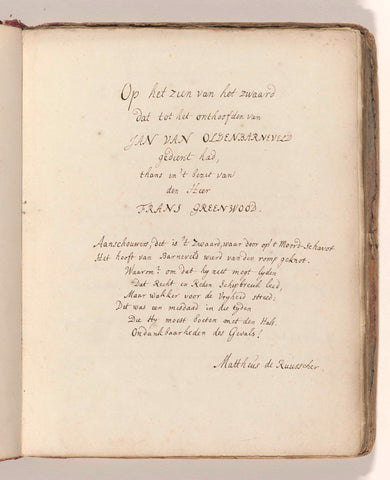 Op het zien van het zwaard
dat tot het onthoofden van
JAN VAN OLDENBARNEVELD
gedient had,
thans in 't bezit van
den Heer
FRANS GREENWOOD.
Aanschouwers, dit is 't zwaard, waar door op 't Moord-Schavot
Het hooft van Barnevelt wierd van den romp geknot.
Waarom? om dat hy niet mogt lyden
Dat Recht en Reden Schipbreuk leed,
Maar wakker voor de Vryheid streed.
Dit was een misdaad in die tyden
Die Hy moest boeten met den Hals.
Ondankbaarheden des Gevals!
Mattheus de Ruusscher